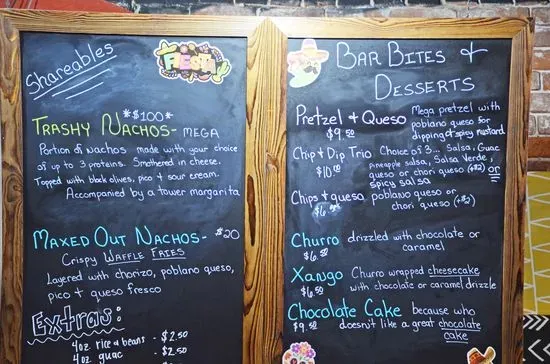 Shareables
FIESTA
*$100*
TRASHY NACHOS- MEGA
PORTION OF NACHOS MADE WITH YOUR CHOICE
OF UP TO 3 PROTEINS. SMOTHERED IN CHEESE.
TOPPED WITH BLACK OLIVES, PICO + SOUR CREAM.
ACCOMPANIED BY A TOWER MARGARITA
MAXED OUT NACHOS- $20
CRISPY WAFFLE FRIES
LAYERED WITH CHORIZO, POBLANO QUESO,
PICO + QUESO FRESCO
Extras:
4oz rice & beans - $2.50
4oz guac - $2.50
BAR BITES +
DESSERTS
PRETZEL + QUESO
$9.50
MEGA PRETZEL WITH
POBLANO QUESO FOR
DIPPING + SPICY MUSTARD
CHIP + DIP TRIO
$10.00
CHOICE OF 3... SALSA, GUAC
PINEAPPLE SALSA, SALSA VERDE,
QUESO OR CHORI QUESO (+$2) OR
SPICY SALSA
CHIPS + QUESO
POBLANO QUESO OR
CHORI QUESO (+$2)
CHURRO
DRIZZLED WITH CHOCOLATE OR
CARAMEL
XANGO
CHURRO WRAPPED CHEESECAKE
WITH CHOCOLATE OR CARAMEL DRIZZLE
CHOCOLATE CAKE
$9.50
BECAUSE WHO
DOESN'T LIKE A GREAT CHOCOLATE
CAKE